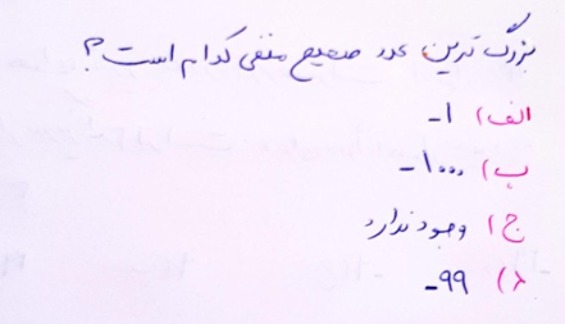 بزرگ ترین عدد صحیح منفی کدام است؟
الف) ۱-
ب) ۱۰۰۰-
ج) وجود ندارد
د) ۹۹-